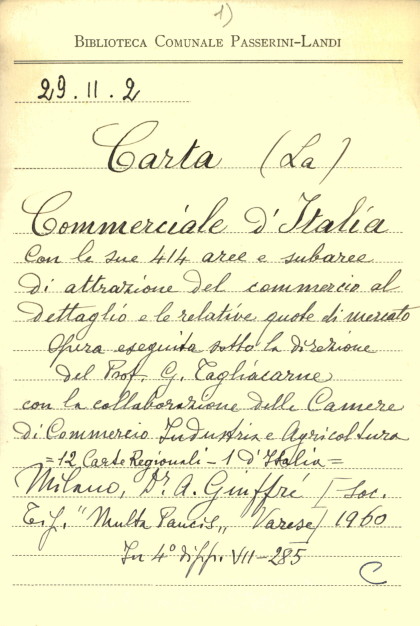 1)
BIBLIOTECA COMUNALE PASSERINI-LANDI
29.11.2
Carta (La)
Commerciale d'Italia
con le sue 414 aree e subaree
di attrazione del commercio al
dettaglio e le relative quote di mercato
Opera eseguita sotto la direzione
del Prof. G. Tagliacarne
con la collaborazione delle Camere
di Commercio Industria e Agricoltura
=12 Carte Regionali - 1 d'Italia=
Milano, Dr. A. Giuffrè [Soc.
Tip. "Multa Paucis" Varese] 1960
In 4° di pp. VII-285
C